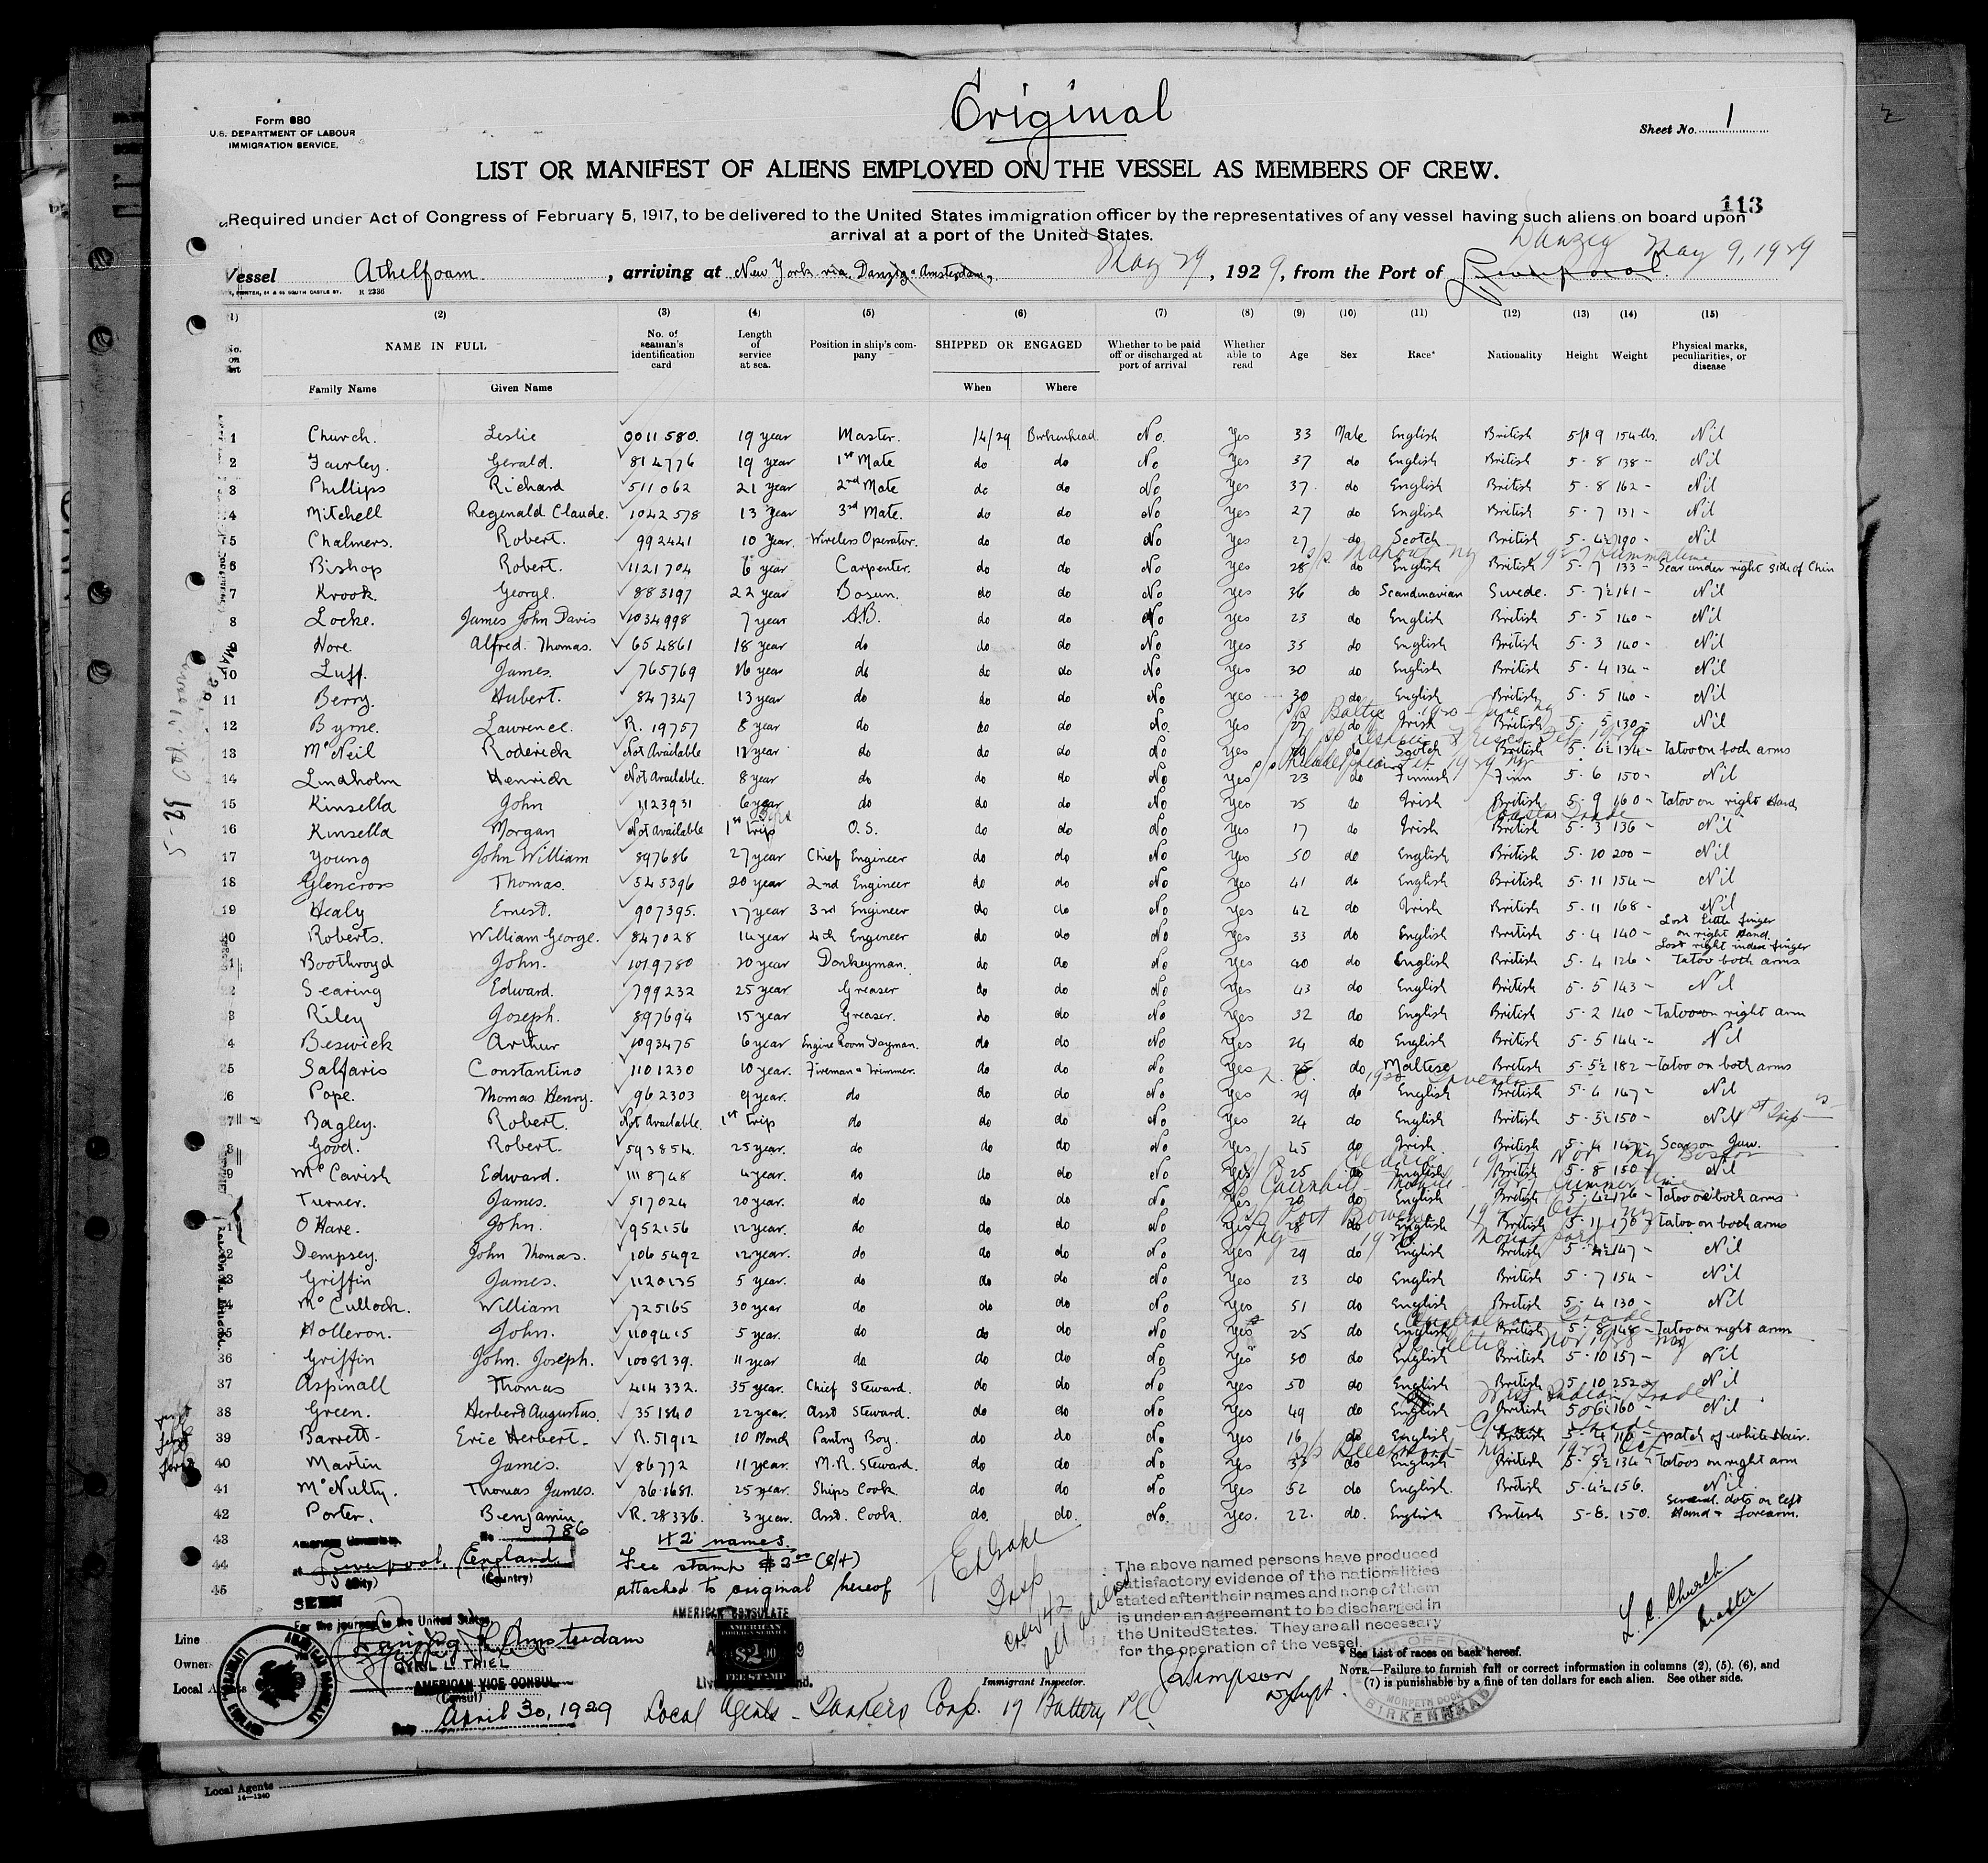 Original
Form 680
U.S. DEPARTMENT OF LABOUR
IMMIGRATION SERVICE.
Sheet No. 1
LIST OR MANIFEST OF ALIENS EMPLOYED ON THE VESSEL AS MEMBERS OF CREW.
113
Required under Act of Congress of February 5, 1917, to be delivered to the United States immigration officer by the representatives of any vessel having such aliens on board upon
arrival at a port of the United States.
Danzig May 9, 1929
Vessel Athelfoam, arriving at New York via Danzig & Amsterdam, May 29, 1929, from the Port of Liverpool
(1) (2) (3) (4) (5) (6) (7) (8) (9) (10) (11) (12) (13) (14) (15)
No. on list NAME IN FULL No. of seaman's identification card Length of service at sea. Position in ship's company SHIPPED OR ENGAGED Whether to be paid off or discharged at port of arrival Whether able to read Age Sex Race* Nationality Height Weight Physical marks, peculiarities, or disease
Family Name Given Name When Where
1 Church. Leslie 0011580. 19 year Master. 1/4/29 Birkenhead No. Yes 33 Male English British 5 ft 9 154 lbs. Nil
2 Fairley. Gerald. 814776 19 year 1st Mate do do No Yes 37 do English British 5-8 138- Nil
3 Phillips Richard 511062 21 year 2nd Mate do do No Yes 37 do English British 5-8 162- Nil
4 Mitchell Reginald Claude. 1042578 13 year 3rd Mate. do do No Yes 27 do English British 5-7 131- Nil
5 Chalmers. Robert. 992441 10 year. Wireless Operator. do do No Yes 27 do Scotch British 5-4½ 190- Nil
6 Bishop Robert. 1121704 6 year Carpenter. do do No Yes 28 do English British 5-7 133- Scar under right side of Chin
7 Krook. George. 883197 22 year Bosun. do do No Yes 36 do Scandinavian Swede. 5-7½ 161- Nil
8 Locke. James John Davis 1034998 7 year A.B. do do No Yes 23 do English British 5-5 140- Nil
9 Hore. Alfred. Thomas. 654861 18 year do do do No Yes 35 do English British 5-3 140- Nil
10 Luff. James. 765769 16 year do do do No Yes 30 do English British 5-4 134- Nil
11 Berry. Hubert. 847347 13 year do do do No Yes 30 do English British 5-5 140- Nil
12 Byrne. Lawrence. R. 19757 8 year do do do No. Yes 27 do Irish British 5-5 130- Nil
13 McNeil Roderick Not Available 12 year do do do No Yes 29 do Scotch British 5-6½ 134- Tatoo on both arms
14 Lindholm Henrick Not Available. 8 year do do do No Yes 23 do Finnish Finn 5-6 150- Nil
15 Kinsella John 1123931 6 year do do do No Yes 25 do Irish British 5-9 160- Tatoo on right Hand
16 Kinsella Morgan Not Available 1st trip O.S. do do No Yes 17 do Irish British 5-3 136- Nil
17 Young John William 897686 27 year Chief Engineer do do No Yes 50 do English British 5-10 200- Nil
18 Glencross Thomas. 545396 20 year 2nd Engineer do do No Yes 41 do English British 5-11 154- Nil
19 Healy Ernest. 907395. 17 year 3rd Engineer do do No Yes 42 do Irish British 5-11 168- Nil
20 Roberts. William George. 847028 14 year 4th Engineer do do No Yes 33 do English British 5-4 140- Lost little finger on right Hand.
21 Boothroyd John. 1019780 20 year Donkeyman. do do No Yes 40 do English British 5-4 126- Lost right index finger Tatoo both arms
22 Searing Edward. 799232 25 year Greaser do do No Yes 43 do English British 5-5 143- Nil
23 Riley Joseph. 897694 15 year Greaser. do do No Yes 32 do English British 5-2 140- Tatoo on right arm
24 Beswick Arthur 1093475 6 year Engine Room Dayman. do do No Yes 24 do English British 5-5 144- Nil
25 Salfaris Constantino 1101230 10 year. Fireman & Trimmer. do do No Yes 25 do Maltese British 5-5½ 182- Tatoo on both arms
26 Pope. Thomas Henry. 962303 9 year. do do do No Yes 29 do English British 5-6 147- Nil
27 Bagley. Robert. Not Available. 1st trip do do do No Yes 24 do English British 5-3½ 150- Nil
28 Good. Robert. 593854. 25 year. do do do No Yes 45 do Irish. British 5-4 147- Scar on Jaw.
29 McCavish Edward. 1118748 4 year. do do do No Yes 25 do English British 5-8 150- Nil
30 Turner. James. 517024 20 year. do do do No Yes do English British 5-4½ 126- Tatoo on both arms
31 O'Hare. John. 952156 12 year. do do do No Yes 28 do English British 5-11 170- Tatoo on both arms
32 Dempsey. John Thomas. 1065492 12 year. do do do No Yes 29 do English British 147- Nil
33 Griffin James. 1120135 5 year. do do do No Yes 23 do English British 5-7 154- Nil
34 McCullock. William 725165 30 year do do do No Yes 51 do English British 5-4 130- Nil
35 Holleron. John. 1109415 5 year. do do do No Yes 25 do English British 5-8 148- Tatoo on right arm
36 Griffin John. Joseph. 1008139. 11 year do do do No Yes 30 do English British 5-10 157- Nil
37 Aspinall Thomas 414332. 35 year. Chief Steward. do do No Yes 50 do English British 5-10 252- Nil
38 Green. Herbert Augustus. 351840 22 year. Asst Steward. do do No Yes 49 do English British 5-6 160- Nil
39 Barrett- Eric Herbert- R. 51912 10 Month Pantry Boy. do do No Yes 16 do English British 5-4 115- patch of white Hair.
40 Martin James. 86772 11 year. M.R. Steward. do do No Yes 33 do English British 5-5½ 134- Tatoos on right arm
41 McNulty. Thomas James. 361681. 25 year. Ships Cook. do do No Yes 52 do English. British 5-4½ 156. Nil.
42 Porter. Benjamin R. 28336. 3 year. Asst. Cook. do. do. No. Yes. 22. do. English British 5-8. 150. Several dots on left Hand & forearm.
43 No 786 42 names.
44 at Liverpool, England Fee stamp $2.00 (8/4)
(City) (Country)
45 attached to original hereof
SEEN
For the journey to the United States
Danzig & Amsterdam
AMERICAN VICE CONSUL
(Consul)
Date April 30, 1929
AMERICAN CONSULATE
AMERICAN
FOREIGN SERVICE
$2.00
FEE STAMP
Insp
Crew 42
all aliens
The above named persons have produced
satisfactory evidence of the nationalities
stated after their names and none of them
is under an agreement to be discharged in
the United States. They are all necessary
for the operation of the vessel.
JaSimpson
L. C. Church.
Master
Line
Owners
Local Agents
Immigrant Inspector.
* See List of races on back hereof.
NOTE.—Failure to furnish full or correct information in columns (2), (5), (6), and
(7) is punishable by a fine of ten dollars for each alien. See other side.
MORPETH DOCK
BIRKENHEAD
Local Agents - Tankers Corp. 17 Battery Pl.
Local Agents
14—1240